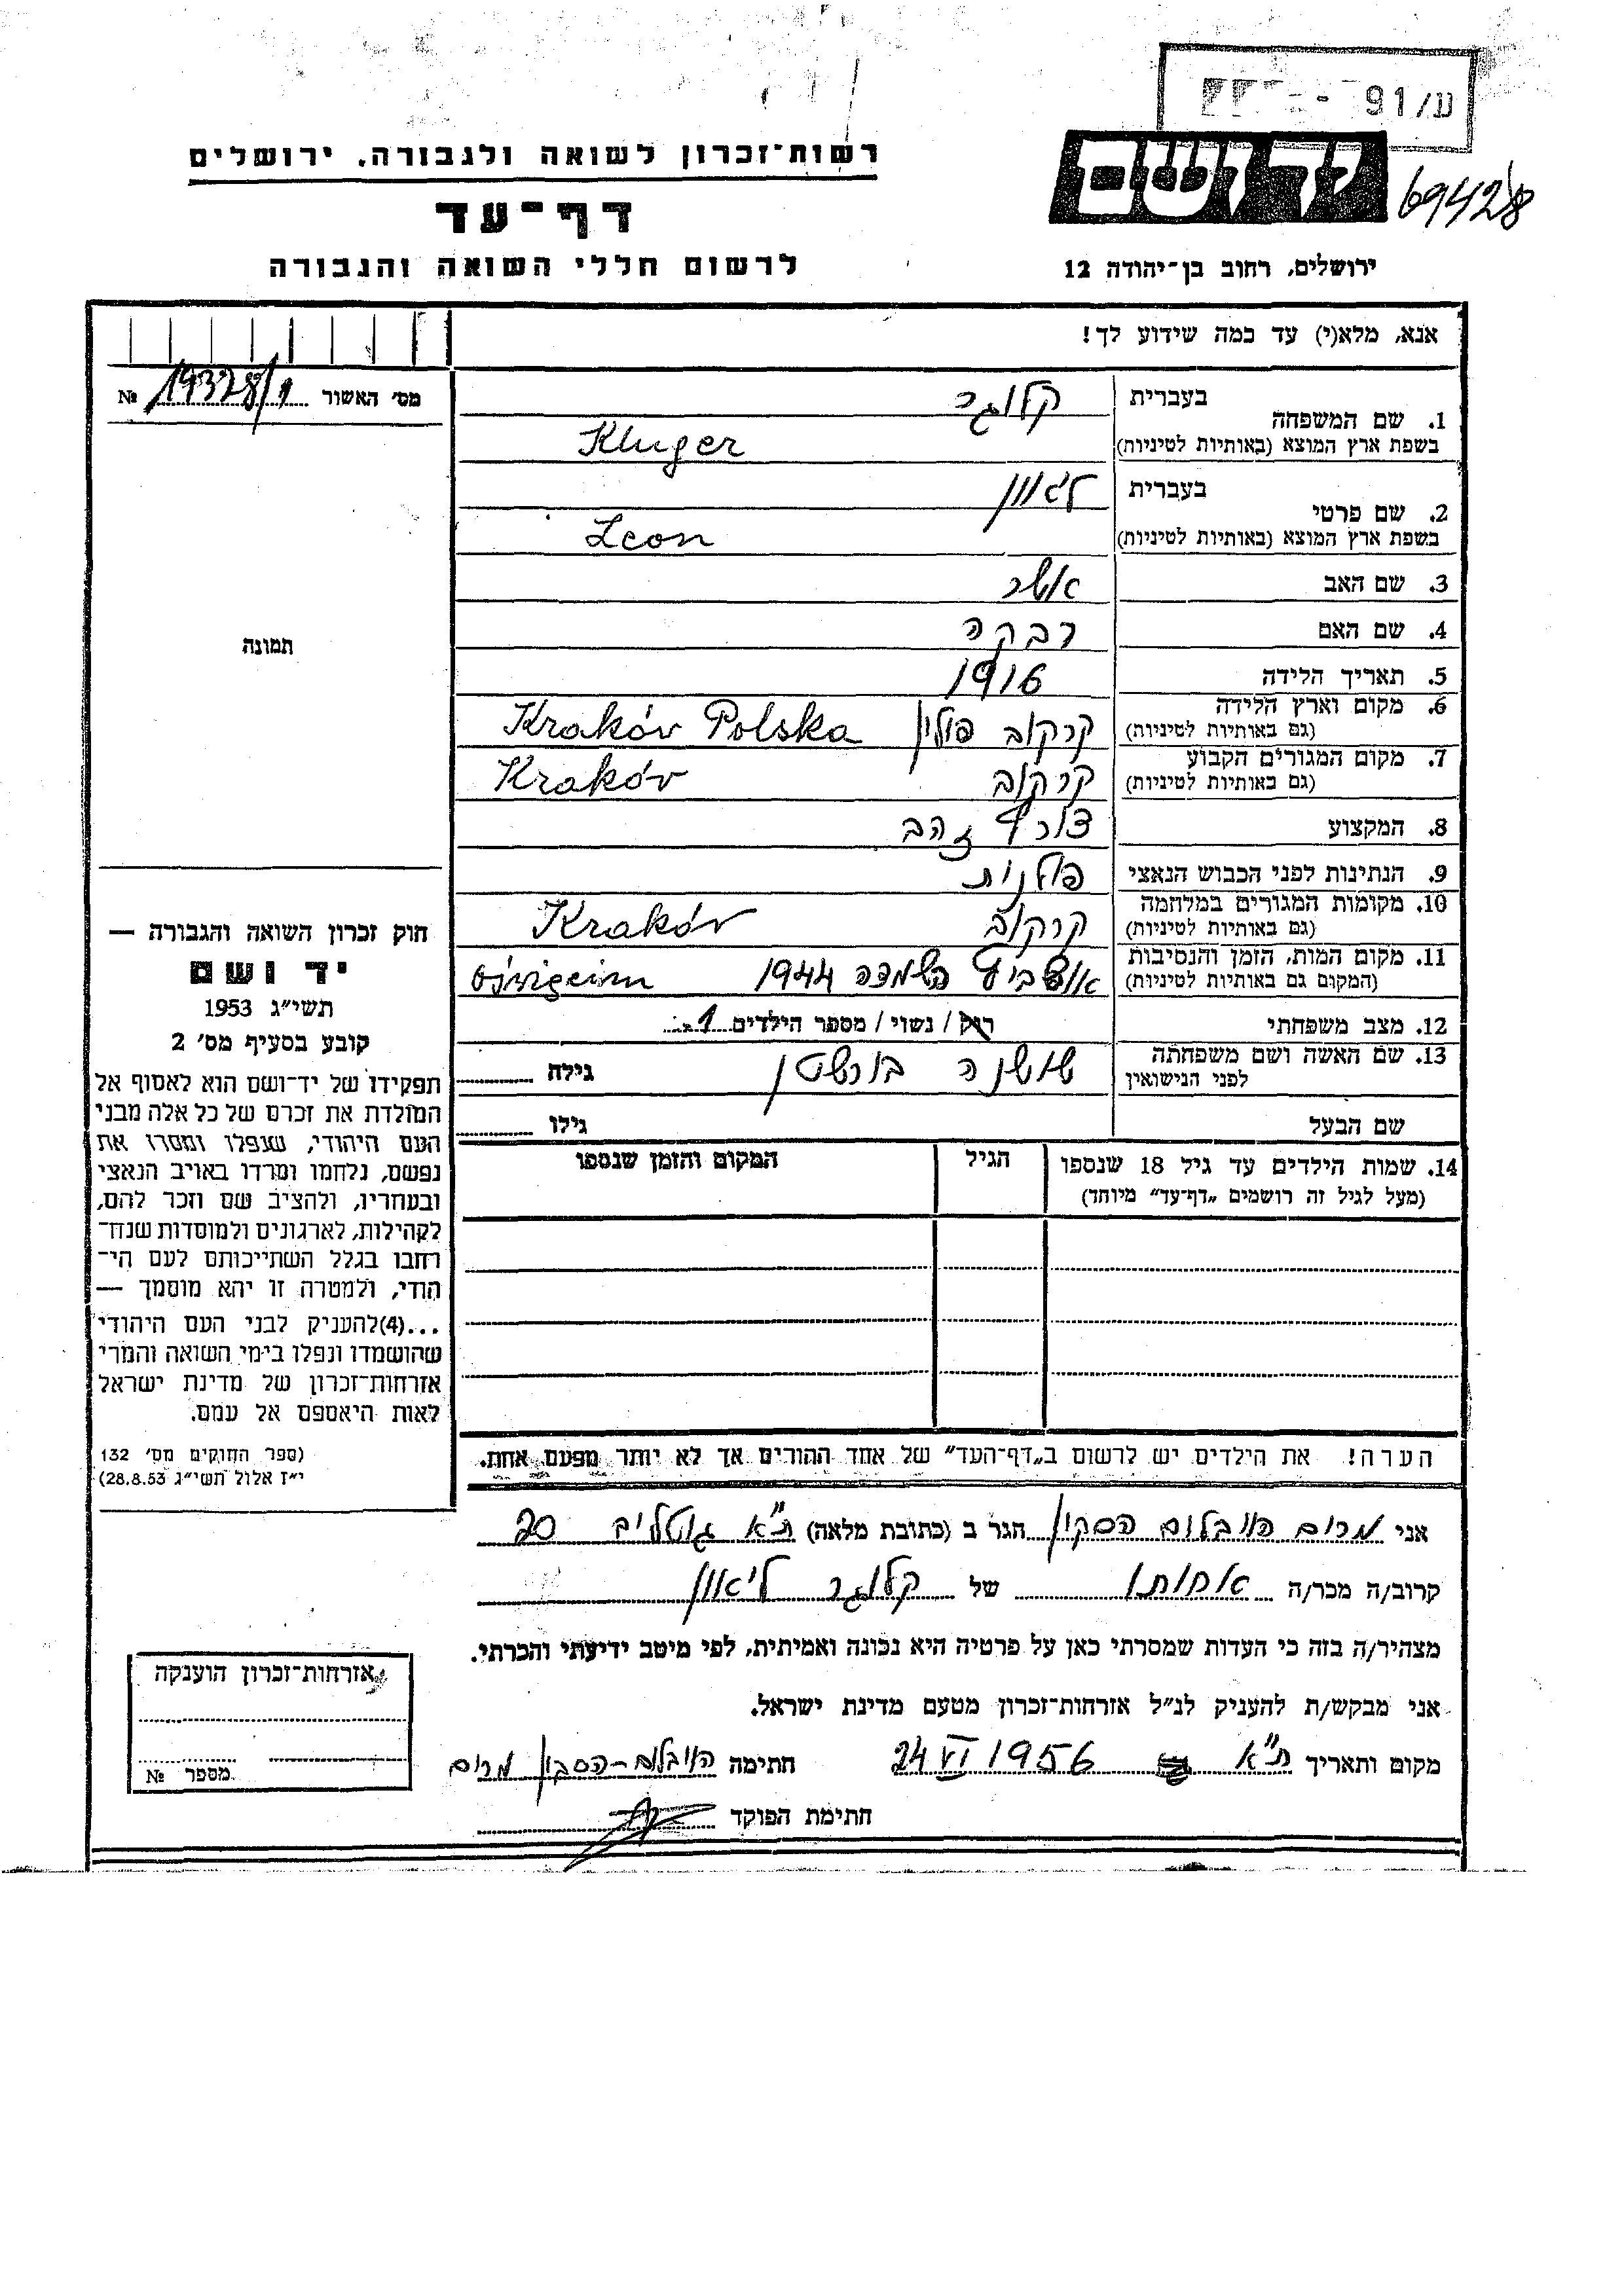 ע/91 -
רשות־זכרון לשואה ולגבורה, ירושלים
יד ושם
69428
דף־עד
לרשום חללי השואה והגבורה
ירושלים, רחוב בן־יהודה 12
אנא, מלא(י) עד כמה שידוע לך!
מס׳ האשור 19378/1 №
1. שם המשפחה
בעברית קלוגר
בשפת ארץ המוצא (באותיות לטיניות) Kluger
2. שם פרטי
בעברית ליאון
בשפת ארץ המוצא (באותיות לטיניות) Leon
3. שם האב אשר
4. שם האם רבקה
5. תאריך הלידה 1916
6. מקום וארץ הלידה
(גם באותיות לטיניות) קרקוב פולין Kraków Polska
7. מקום המגורים הקבוע
(גם באותיות לטיניות) קרקוב Kraków
8. המקצוע צורף זהב
9. הנתינות לפני הכבוש הנאצי פולנית
10. מקומות המגורים במלחמה
(גם באותיות לטיניות) קרקוב Kraków
11. מקום המות, הזמן והנסיבות
(המקום גם באותיות לטיניות) השמדה 1944
12. מצב משפחתי רוק / נשוי / מספר הילדים 1
13. שם האשה ושם משפחתה
לפני הנישואין שושנה בורשטן גילה
שם הבעל גילו
14. שמות הילדים עד גיל 18 שנספו
(מעל לגיל זה רושמים „דף־עד״ מיוחד)
הגיל
המקום והזמן שנספו
הערה! את הילדים יש לרשום ב„דף־העד״ של אחד ההורים אך לא יותר מפעם אחת.
תמונה
חוק זכרון השואה והגבורה —
יד ושם
תשי״ג 1953
קובע בסעיף מס׳ 2
תפקידו של יד־ושם הוא לאסוף אל
המולדת את זכרם של כל אלה מבני
העם היהודי, שנפלו ומסרו את
נפשם, נלחמו ומרדו באויב הנאצי
ובעוזריו, ולהציב שם וזכר להם,
לקהילות, לארגונים ולמוסדות שנח־
רבו בגלל השתייכותם לעם הי־
הודי, ולמטרה זו יהא מוסמך —
...(4)להעניק לבני העם היהודי
שהושמדו ונפלו בימי השואה והמרי
אזרחות־זכרון של מדינת ישראל
לאות היאספם אל עמם.
(ספר החוקים מס׳ 132
י״ז אלול תשי״ג 28.8.53)
אני מרים הויבלום הסקון הגר ב (כתובת מלאה) ת״א גוטליב 20
קרוב/ה מכר/ה אחותו של קלוגר ליאון
מצהיר/ה בזה כי העדות שמסרתי כאן על פרטיה היא נכונה ואמיתית, לפי מיטב ידיעתי והכרתי.
אני מבקש/ת להעניק לנ״ל אזרחות־זכרון מטעם מדינת ישראל.
מקום ותאריך ת״א 24 VI 1956 חתימה
חתימת הפוקד
אזרחות־זכרון הוענקה
מספר №